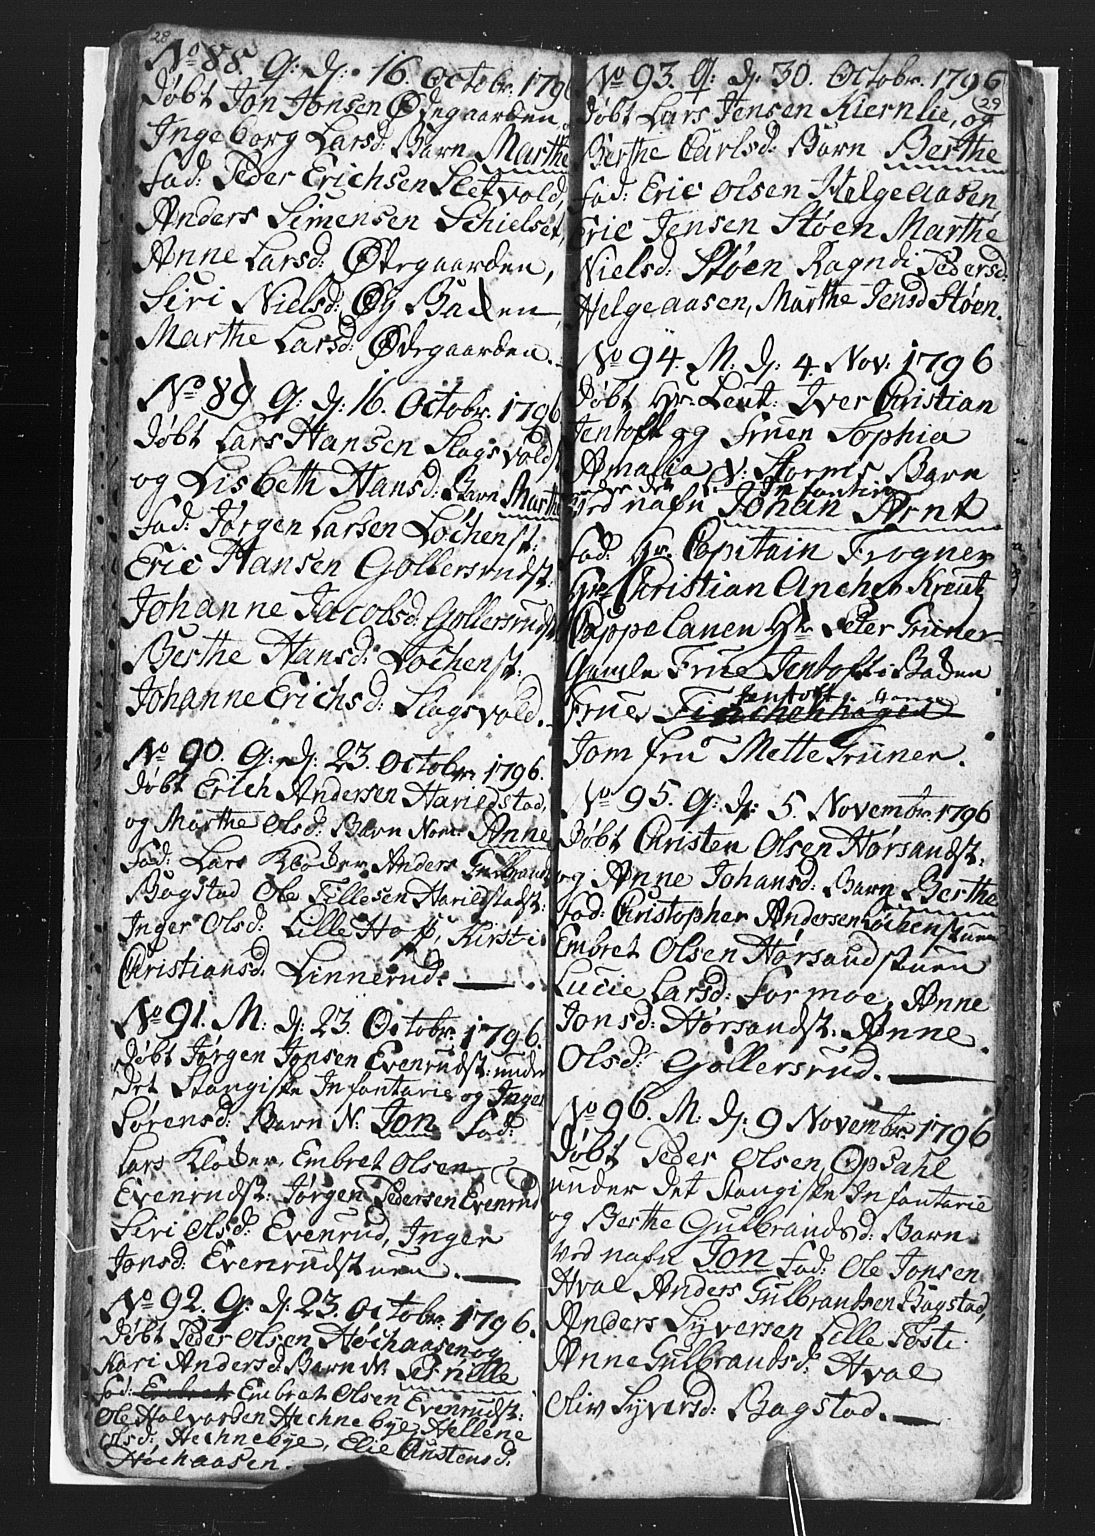 28
No 88 G: d: 16. Octobr. 1796
døbt Jon Jonsen Ødegaarden,
Ingeborg Larsd: Barn Marthe
fad: Peder Erichsen Sletvold,
Anders Simensen Schielset,
Anne Larsd: Ødegaarden,
Siri Nielsd: Øy Baden,
Marthe Larsd: Ødegaarden.
No 89 G: d: 16. Octobr. 1796
døbt Lars Hansen Slagsvold
og Lisbeth Hansd: Barn Marthe
fad: Jørgen Larsen Løchenst:
Eric Hansen Gollersrudst:
Johanne Jacobsd: Gollersrudst
Berthe Hansd: Løchenst.
Johanne Erichsd: Slagsvold.
No 90. G: d: 23. Octobr. 1796.
døbt Erich Andersen Harildstad,
og Marthe Olsd: Barn Nom: Anne
fad: Lars Kloder, Anders Gulbrands
Bagstad Ole Tillesen Harildstadst:
Inger Olsd: Lille Hof, Kirsti
Christiansd: Linnerud.
No 91. M: d: 23. Octobr. 1796.
døbt Jørgen Jonsen Evenrudst: under
det Stangiske Infantarie og Inger
Sørensd: Barn N: Jon fad:
Lars Kloder, Embret Olsen
Evenrudst: Jørgen Pedersen Evenrud
Siri Olsd: Evenrud, Inger
Jonsd: Evenrudstuen.
No 92. G: d: 23. Octobr. 1796.
døbt Peder Olsen Høchaasen og
Kari Andersd: Barn N: Pernille
fad: Embret Embret Olsen Evenrudst:
Ole Halvorsen Hechnebye, Hellene
Olsd: Hechnebye, Elie Chustensd.
Høchaasen.
No 93. G: d: 30. Octobr. 1796
29
døbt Lars Jensen Kiernlie, og
Berthe Carlsd: Barn Berthe
fad: Eric Olsen Helgeaasen,
Eric Jensen Støen Marthe
Nielsd: Støen Ragndi Pedersd:
Helgeaasen, Marthe Jensd Støen.
No 94. M. d: 4. Nov: 1796
døbt Hr. Leut: Iver Christian
Jentoft og Fruen Sophia
Amalia v: Storms Barn
ved nafn Johan Arnt
fad: Hr. Capitain Frogner
Hr. Christian Ancher Kreutz
Cappelanen Hr. Peter Grüner
Gamle Frue Jentoft i Baden
Jentoft
Frue
Jomfru Mette Grüner.
No 95. G: d: 5. Novembr. 1796
døbt Christen Olsen Hørsandst:
og Anne Johansd: Barn Berthe
fad: Christopher Andersen Løchenstuen
Embret Olsen Hørsandstuen
Lucie Larsd: Formoe, Anne
Jonsd: Hørsandst: Anne
Olsd: Gollersrud.
No 96. M. d: 9 Novembr. 1796
døbt Peder Olsen Opsahl
under det Stangiske Infantarie
og Berthe Gulbrandsd: Barn
ved nafn Jon fad: Ole Jonsen
Hval Anders Gulbrandsen Bagstad,
Anders Syversen Lille Toste
Anne Gulbrandsd: Hval
Oliv Syversd: Bagstad.